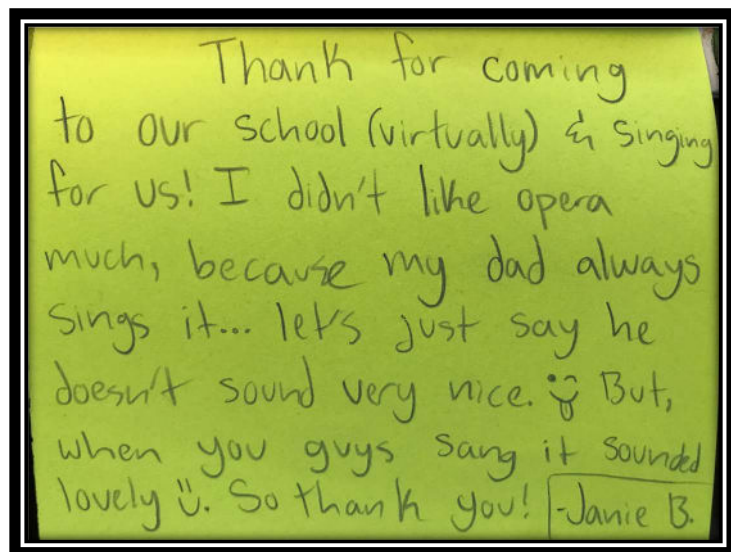 Thank for coming
to our school (virtually) & singing
for us! I didn't like opera
much, because my dad always
sings it... let's just say he
doesn't sound very nice. 😜 But,
when you guys sang it sounded
lovely ü. So thank you! -Janie B.